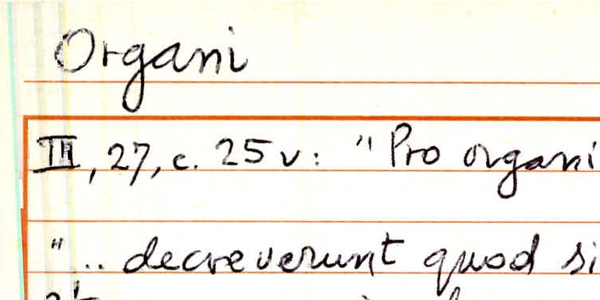 Organi
III, 27, c. 25 v: "Pro organi
"... decreverunt quod si